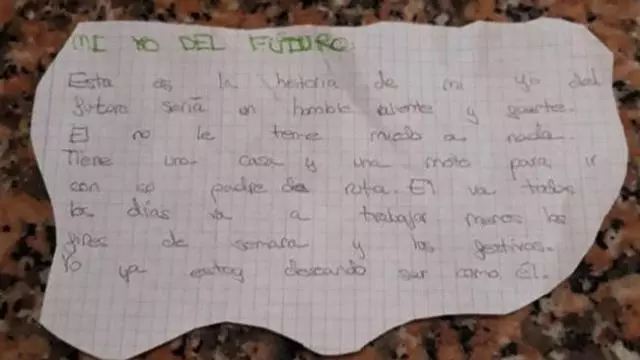 MI YO DEL FUTURO
Esta es la historia de mi yo del
futuro sería un hombre valiente y
El no le tiene miedo a nada.
Tiene una casa y una moto para ir
con su padre de ruta. El va todos
los días a a trabajar menos los
fines de semana y los festivos.
Yo ya estoy deseando ser como él.